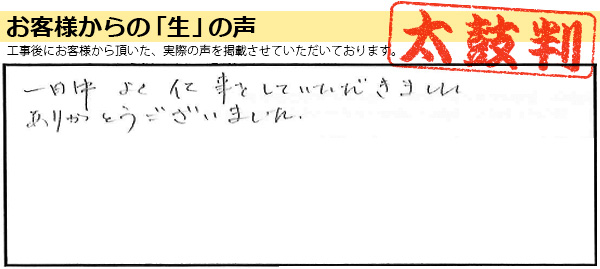 お客様からの「生」の声
太鼓判
工事後にお客様から頂いた、実際の声を掲載させていただいております。
一日中 よく仕事をしていただきました
ありがとうございました.